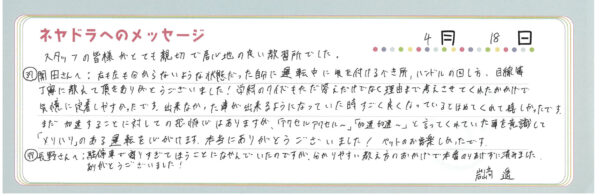 ネヤドラへのメッセージ
4月 18日
スタッフの皆様がとても親切で居心地の良い教習所でした。
さんへ:右も左も分からないような状態だった自分に運転中に気を付けるべき所、ハンドルの回し方、目線等
丁寧に教えて頂きありがとうございました!学科のクイズもただ答えだけでなく理由まで考えさせてくれたおかげで
気憶に定着しやすかったです。出来なかった事が出来るようになっていた時すごく良くなっているとほめてくれて嬉しかったです。
まだ加速することに対しての恐怖心はありますが、「アクセルアクセル〜」「加速加速〜」と言ってくれていた事を意識して
「メリハリ」のある運転を心がけます。本当にありがとうございました!ペットのお話楽しかったです。
長野さんへ:駐停車で寄りすぎてしまうことになやんでいたのですが、分かりやすい教え方のおかげで本番のりおすに頑みました。
ありがとうございました!